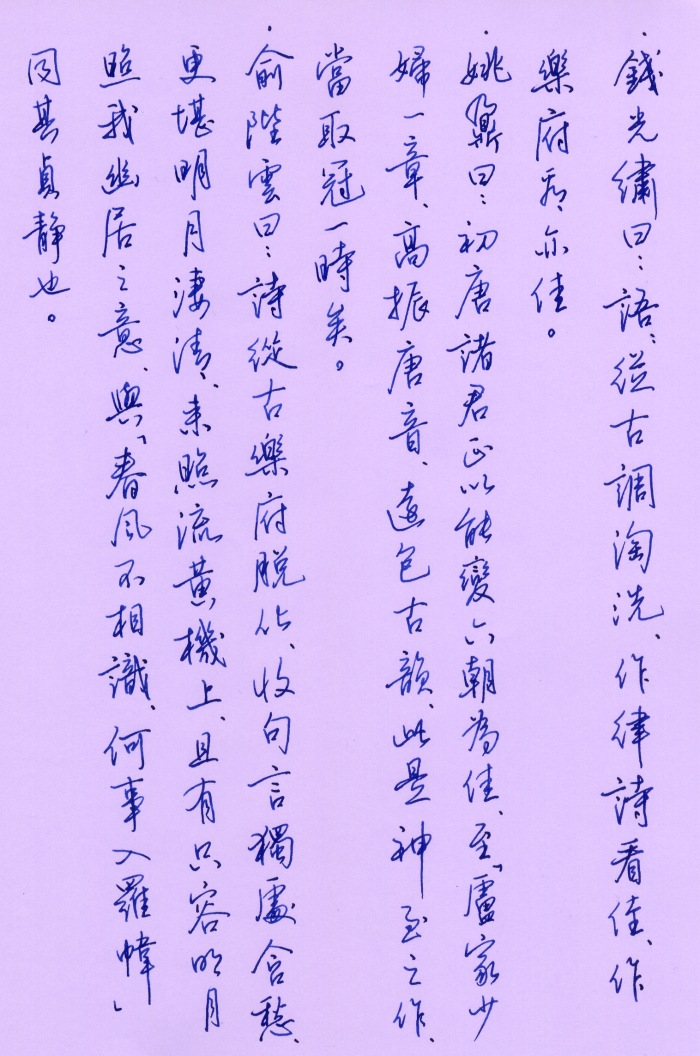 ·錢光繡曰：語語從古調淘洗、作律詩看佳、作
樂府看、亦佳。
·姚鼐曰：初唐諸君正以能變六朝為佳、至「盧家少
婦一章、高振唐音、遠包古韻、此是神至之作、
當取冠一時矣。
·俞陛雲曰：詩從古樂府脱化、收句言獨處含愁、
更堪明月淒清、來照流黃機上、且有只容明月
照我幽居之意、與「春風不相識、何事入羅幃」
同其貞靜也。